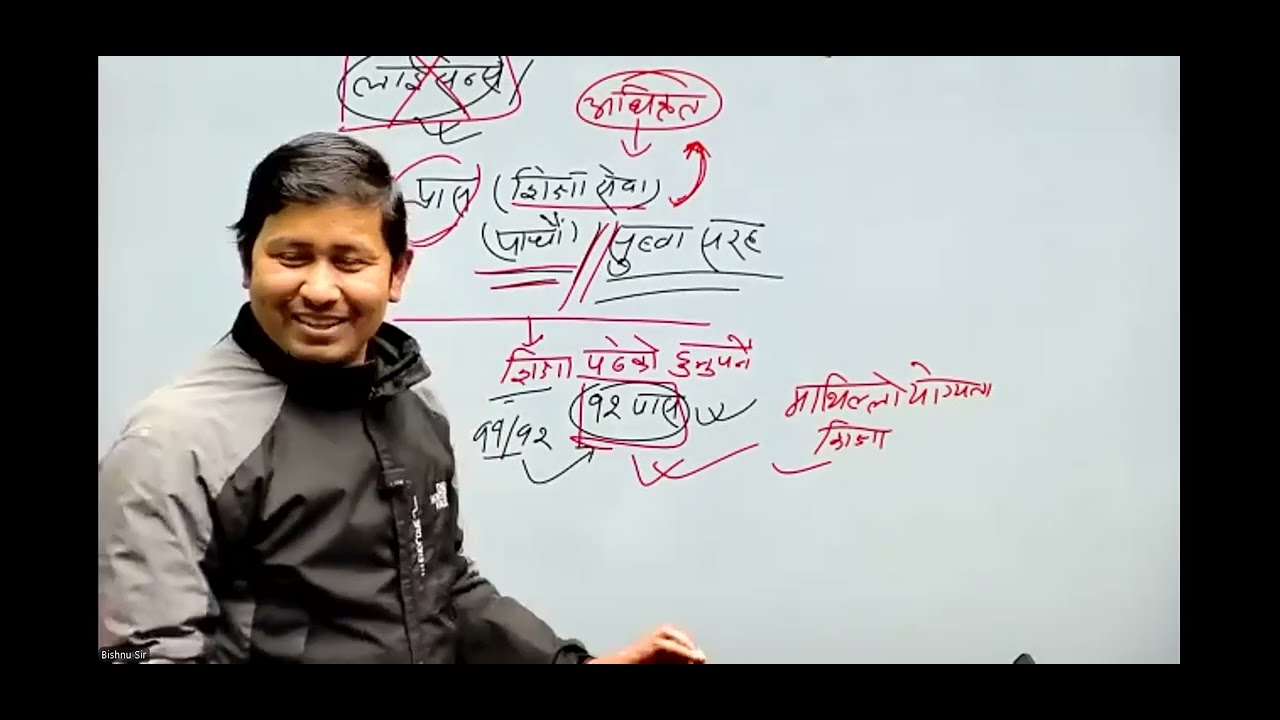 लाइसेन्स
अधिकृत
पास (शिक्षा सेवा)
(पाचौं) // सुब्बा सरह
शिक्षा पढेको हुनुपर्ने
११/१२ १२ पास
माथिल्लो योग्यता
शिक्षा
Bishnu Sir